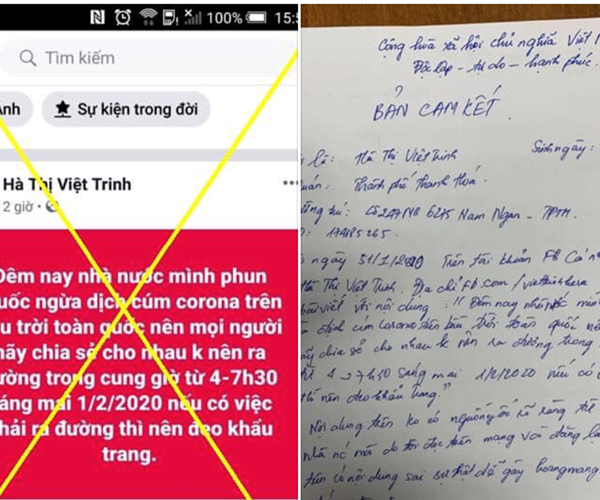 100% 15:5
Tìm kiếm
Ảnh
Sự kiện trong đời
Hà Thị Việt Trinh
2 giờ
Đêm nay nhà nước mình phun
uốc ngừa dịch cúm corona trên
u trời toàn quốc nên mọi người
hãy chia sẻ cho nhau k nên ra
ường trong cung giờ từ 4-7h30
áng mai 1/2/2020 nếu có việc
hải ra đường thì nên đeo khẩu
trang.
Cộng hòa xã hội chủ nghĩa Việt N
Độc lập - tự do - hạnh phúc.
BẢN CAM KẾT.
là: Hà Thị Việt Trinh Sinh ngày:
uán: Thành phố Thanh Hoá.
Nam Ngạn - TPTH.
ngày 31/1/2020 Trên tài khoản FB Cá n
Hà Thị Việt Trinh. Địa chỉ fb.com/
bài viết với nội dung: "Đêm nay nhà nước mình
dịch cúm corona trên bầu trời toàn quốc nê
ãy chia sẻ cho nhau k nên ra đường trong
4 - 7h30 sáng mai 1/2/2020 nếu có
thì nên đeo khẩu trang."
Nội dung trên ko có nguồn gốc rõ ràng
mà do tôi đọc trên mạng và đăng lạ
tin có nội dung sai sự thật dễ gây hoang mang